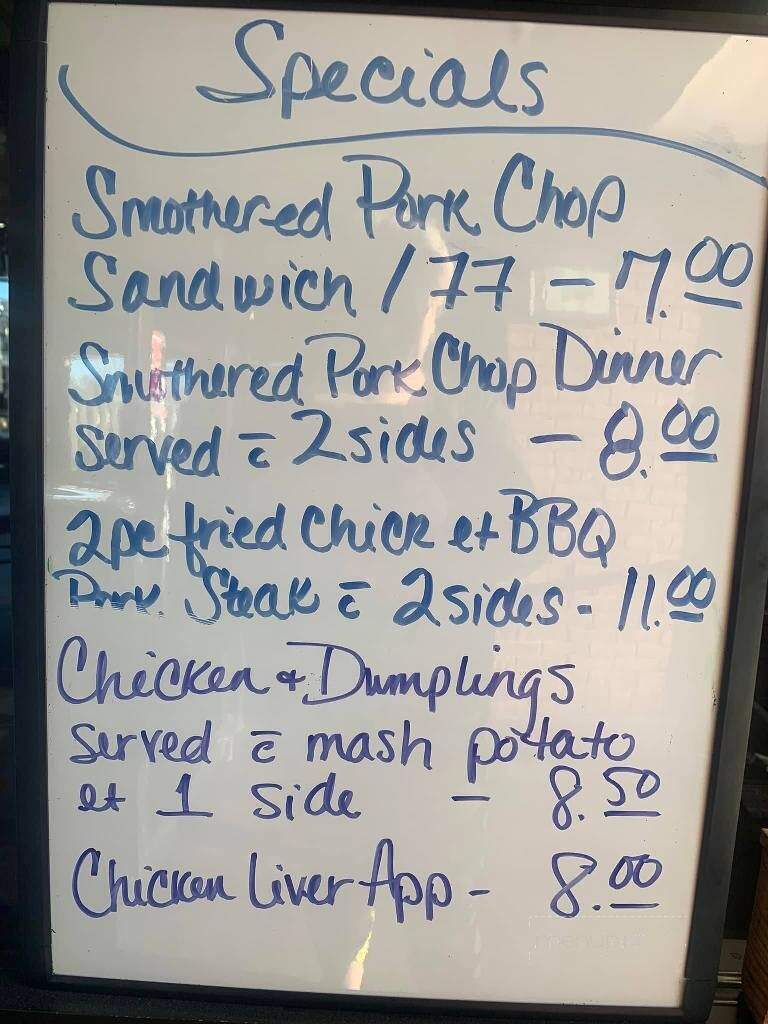 Specials
Smothered Pork Chop
Sandwich / 77 - 7.00
Smothered Pork Chop Dinner
Served c̄ 2 sides - 8.00
2pc fried Chick et BBQ
Pork Steak c̄ 2 sides - 11.00
Chicken & Dumplings
Served c̄ mash potato
et 1 side - 8.50
Chicken Liver App - 8.00